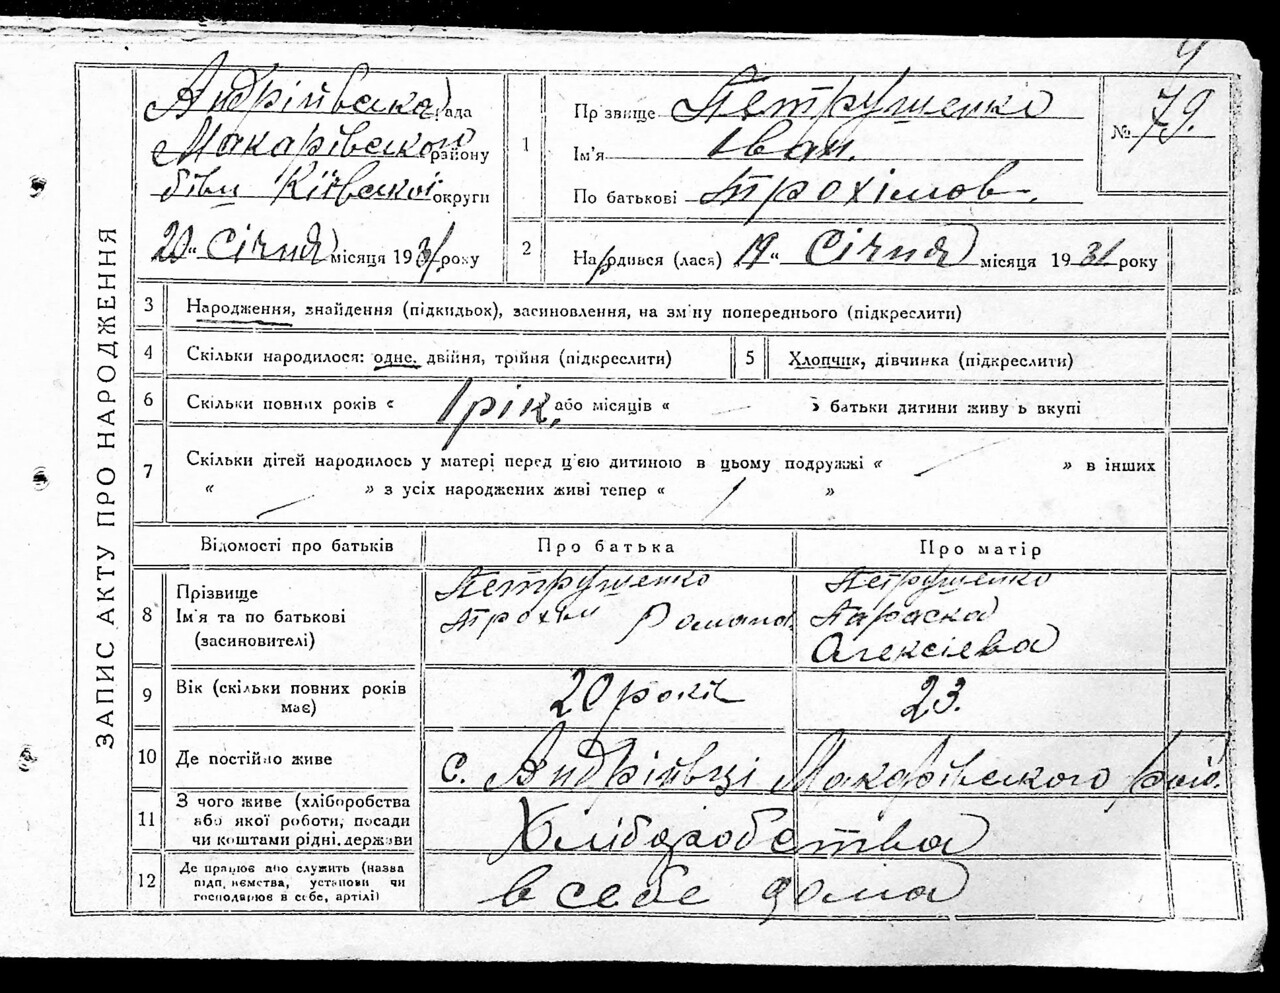 ЗАПИС АКТУ ПРО НАРОДЖЕННЯ
Андріївська рада
Макарівського району
бувш Київської округи
20 " Січня місяця 1931 року
1
Прізвище Петрушенко
Ім'я Іван.
По батькові Трохімов.
№ 79.
2
Народився (лася) 19 " Січня місяця 1931 року
3 Народження, знайдення (підкидьок), засиновлення, на зміну попереднього (підкреслити)
4 Скільки народилося: одне, двійня, трійня (підкреслити)
5 Хлопчик, дівчинка (підкреслити)
6 Скільки повних років « 1 рік, або місяців « батьки дитини живуть вкупі
7 Скільки дітей народилось у матері перед ц'єю дитиною в цьому подружжі « » в інших
« » з усіх народжених живі тепер « »
Відомості про батьків Про батька Про матір
8 Прізвище
Ім'я та по батькові
(засиновителі)
Петрушенко
Трохім Романов.
Петрушенко
Параска
Алексієва
9 Вік (скільки повних років
має)
20 років 23.
10 Де постійно живе с. Андріївці Макарівського рай.
11 З чого живе (хліборобства
або якої роботи, посади
чи коштами рідні, держави
Хліборобства
12 Де працює або служить (назва
підприємства, установи чи
господарює в себе, артілі)
в себе дома